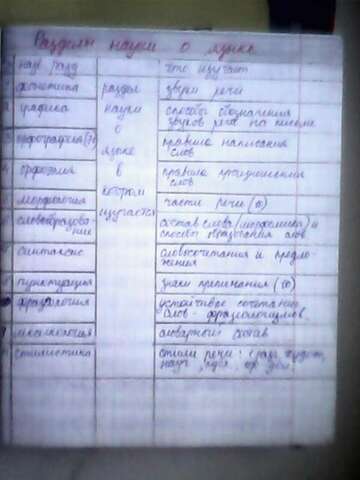 Разделы науки о языке
наз разд что изучает
фонетика раздел звуки речи
графика науки способы обозначения
о звуков речи на письме
орфография языке правила написания
слов
орфоэпия в правила произношения
слов
морфология котором части речи
словообразова- изучается состав слова (морфемика) и
ние способы образования слов
синтаксис словосочетания и предло-
жения
пунктуация знаки препинания
фразеология устойчивое сочетание
слов - фразеологизмов
лексикология словарный состав
стилистика стили речи: